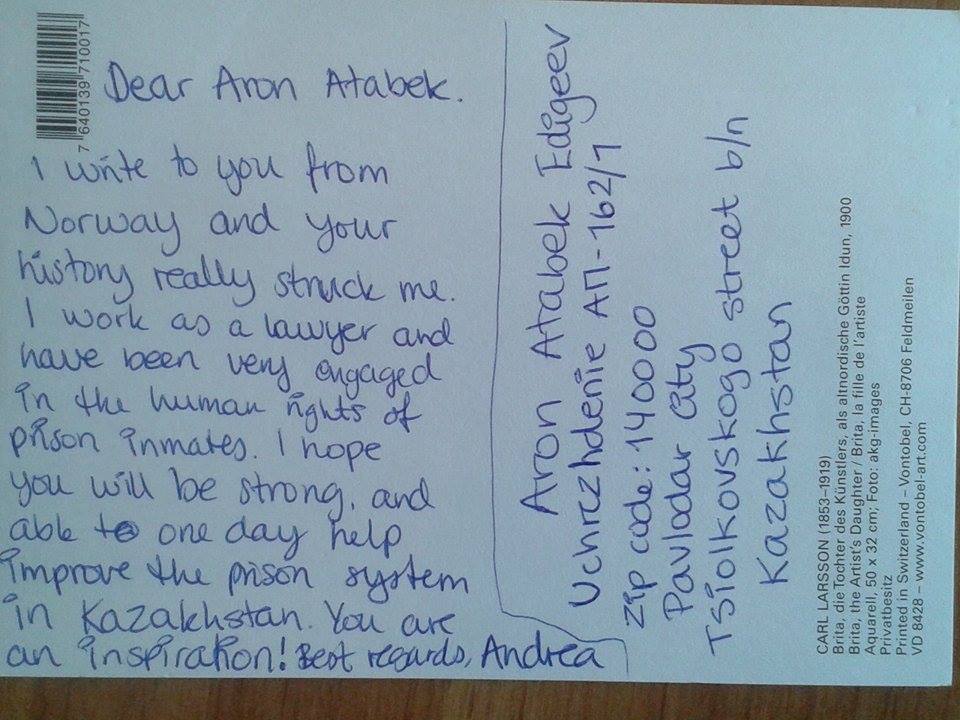 7 640139 710017
Dear Aron Atabek.
I write to you from
Norway and your
history really struck me.
I work as a lawyer and
have been very engaged
in the human rights of
prison inmates. I hope
you will be strong, and
able to one day help
improve the prison system
in Kazakhstan. You are
an inspiration! Best regards, Andrea
Aron Atabek Edigeev
Uchrezhdenie АП-162/1
zip code: 140000
Pavlodar City
Tsiolkovskogo street b/n
Kazakhstan
CARL LARSSON (1853–1919)
Brita, die Tochter des Künstlers, als altnordische Göttin Idun, 1900
Brita, the Artist's Daughter / Brita, la fille de l'artiste
Aquarell, 50 x 32 cm; Foto: akg-images
Privatbesitz
Printed in Switzerland – Vontobel, CH-8706 Feldmeilen
VD 8428 – www.vontobel-art.com